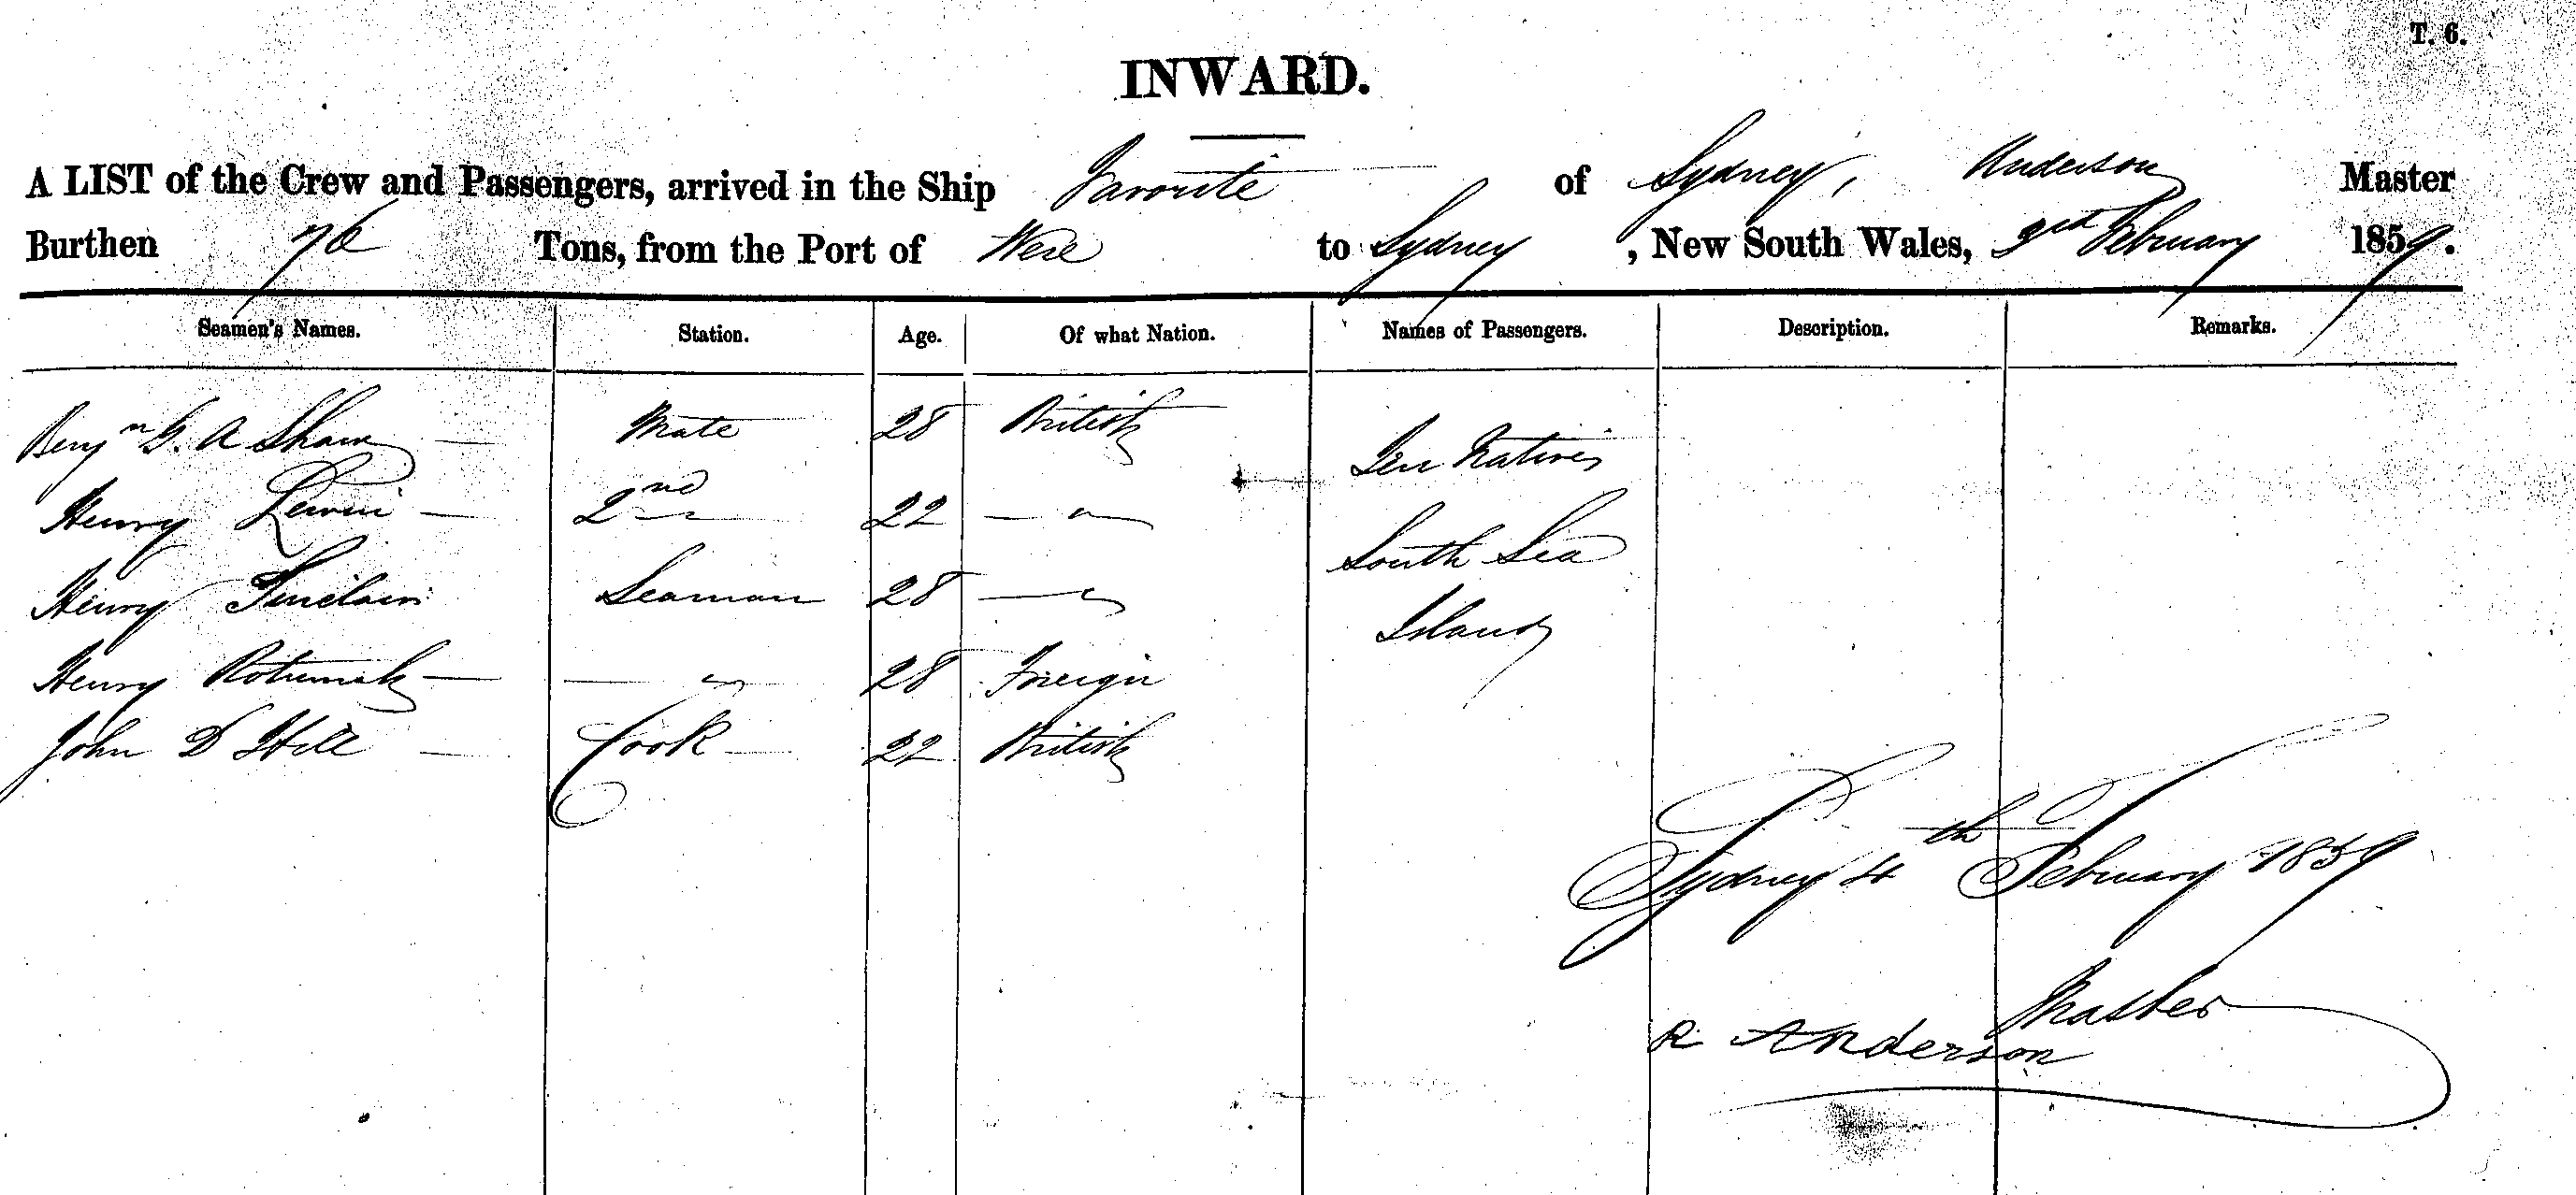 T. 6.
INWARD.
A LIST of the Crew and Passengers, arrived in the Ship Favorite of Sydney, Anderson Master
Burthen 76 Tons, from the Port of Wese to Sydney, New South Wales, 3rd February 1859.
Seamen's Names. Station. Age. Of what Nation. Names of Passengers. Description. Remarks.
Benjn G. A Shaw Mate 28 British Ten Natives
Henry Lewin 2nd 22 — " South Sea
Henry Sinclair Seaman 28 — " Islands
Henry Rotumah — " 28 Foreign
John D Hill Cook 22 British
Sydney 4th February 1859
R Anderson Master